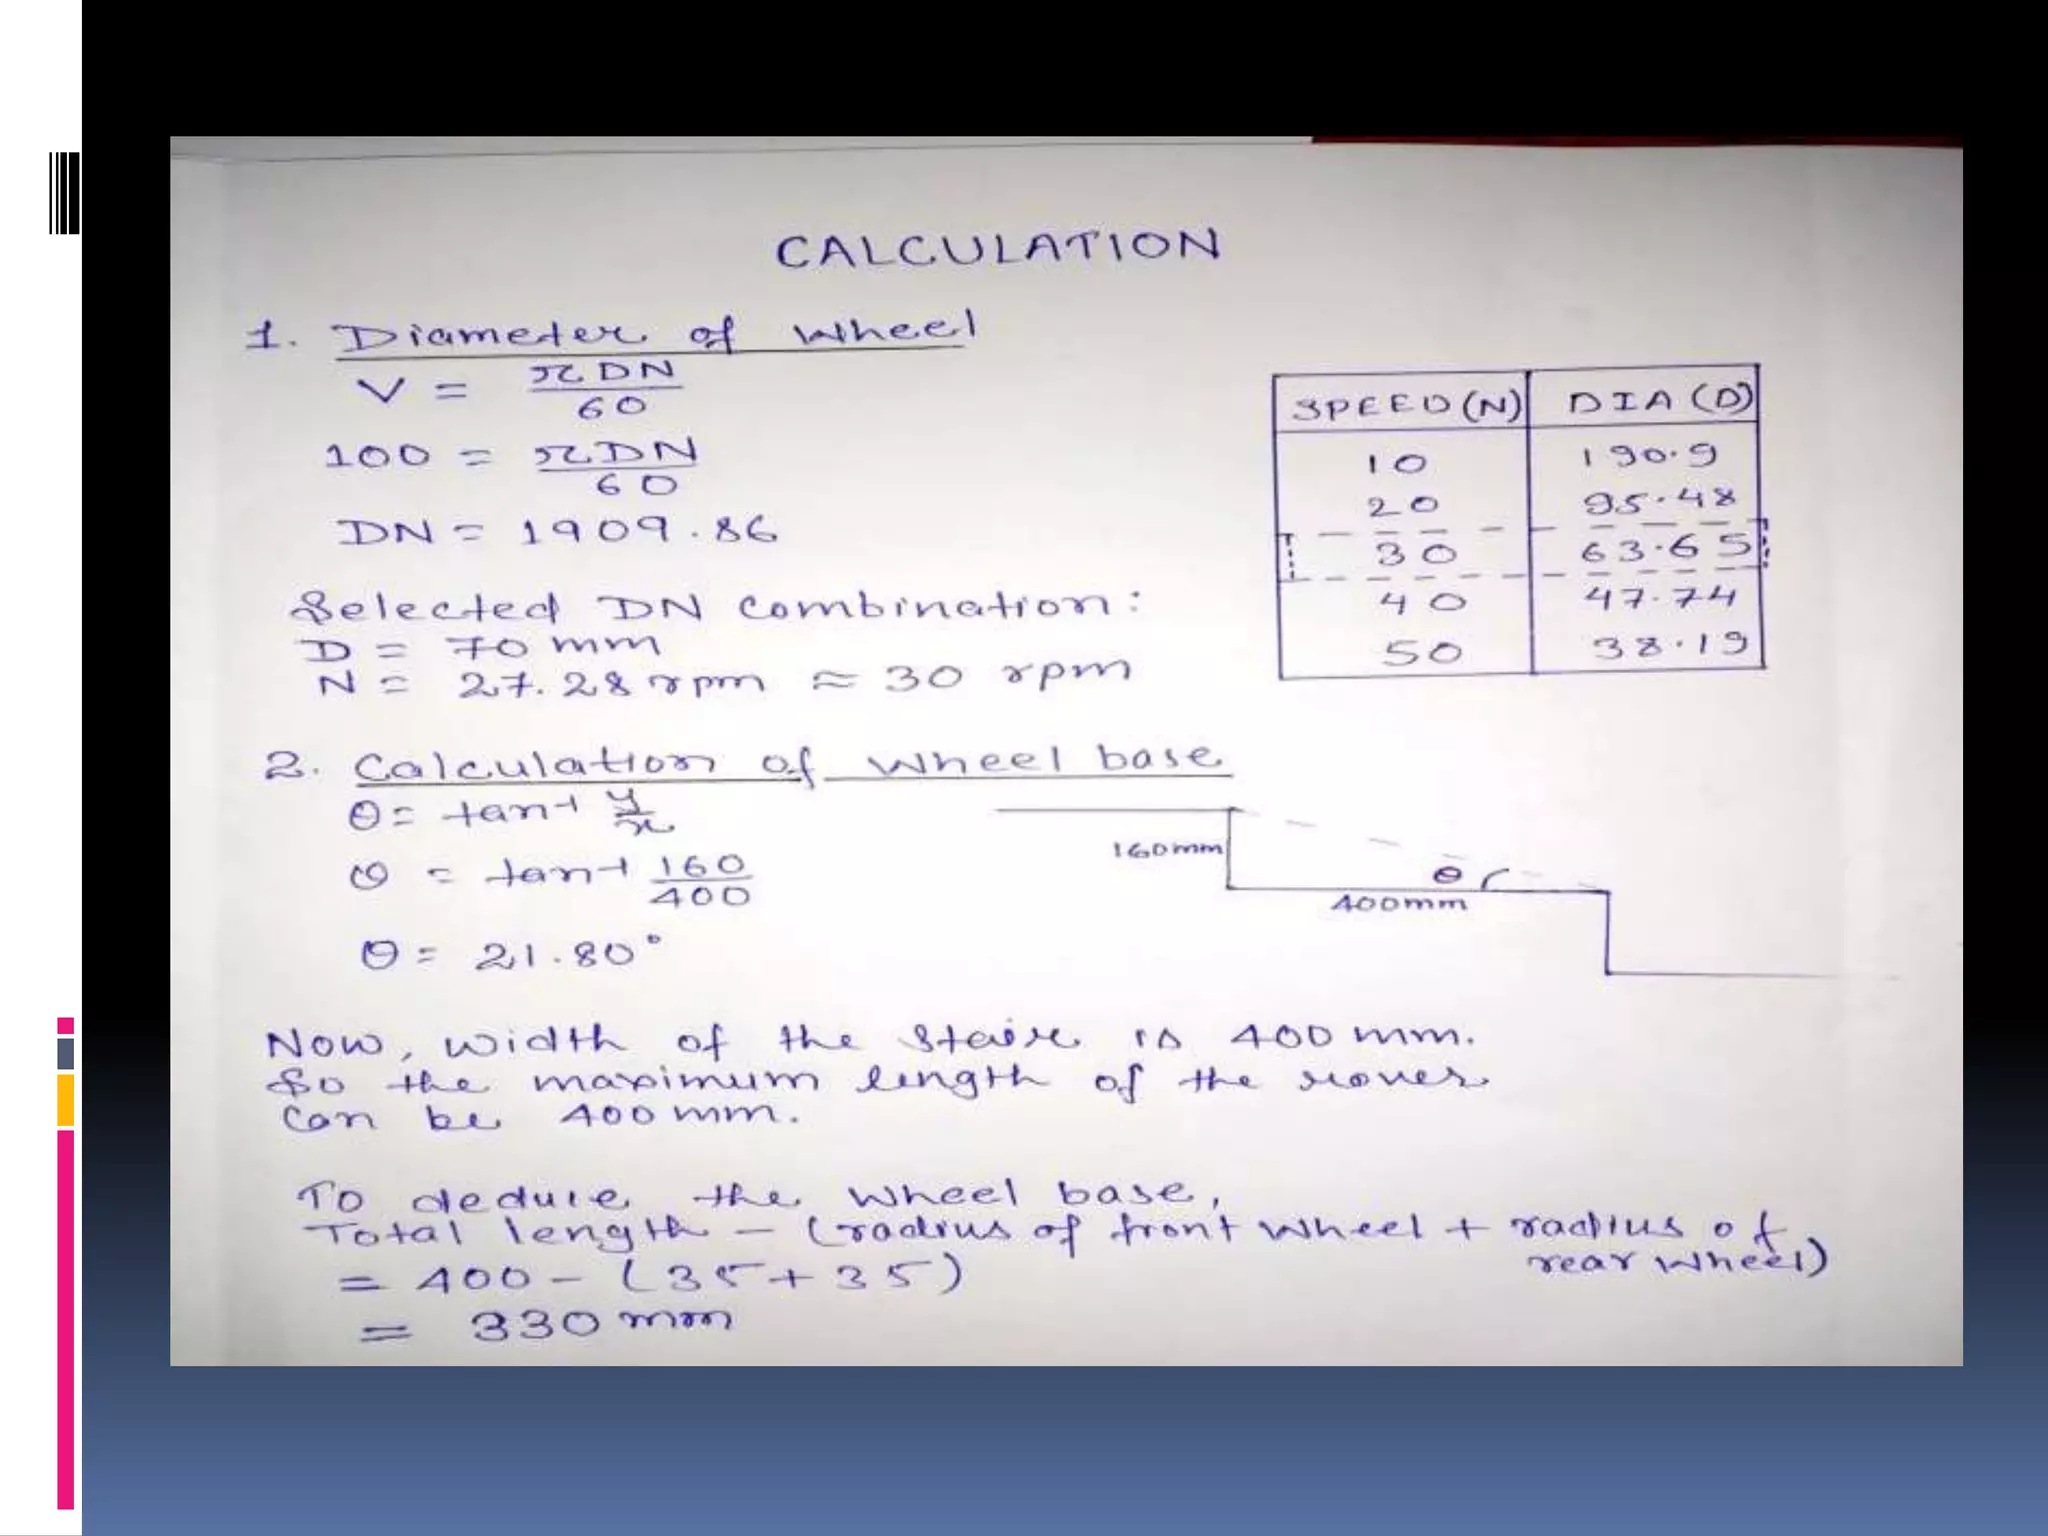 CALCULATION
1. Diameter of Wheel
V = πDN/60
100 = πDN/60
DN = 1909.86
Selected DN Combination:
D = 70 mm
N = 27.28 rpm ≈ 30 rpm
SPEED (N) DIA (D)
10 190.9
20 95.48
30 63.65
40 47.74
50 38.19
2. Calculation of Wheel base
θ = tan-1 y/x
θ = tan-1 160/400
θ = 21.80°
160mm
θ
400mm
Now, width of the Stair is 400 mm.
So the maximum length of the rover
Can be 400 mm.
To deduce the wheel base,
Total length - (radius of front wheel + radius of
rear wheel)
= 400 - (35+35)
= 330 mm